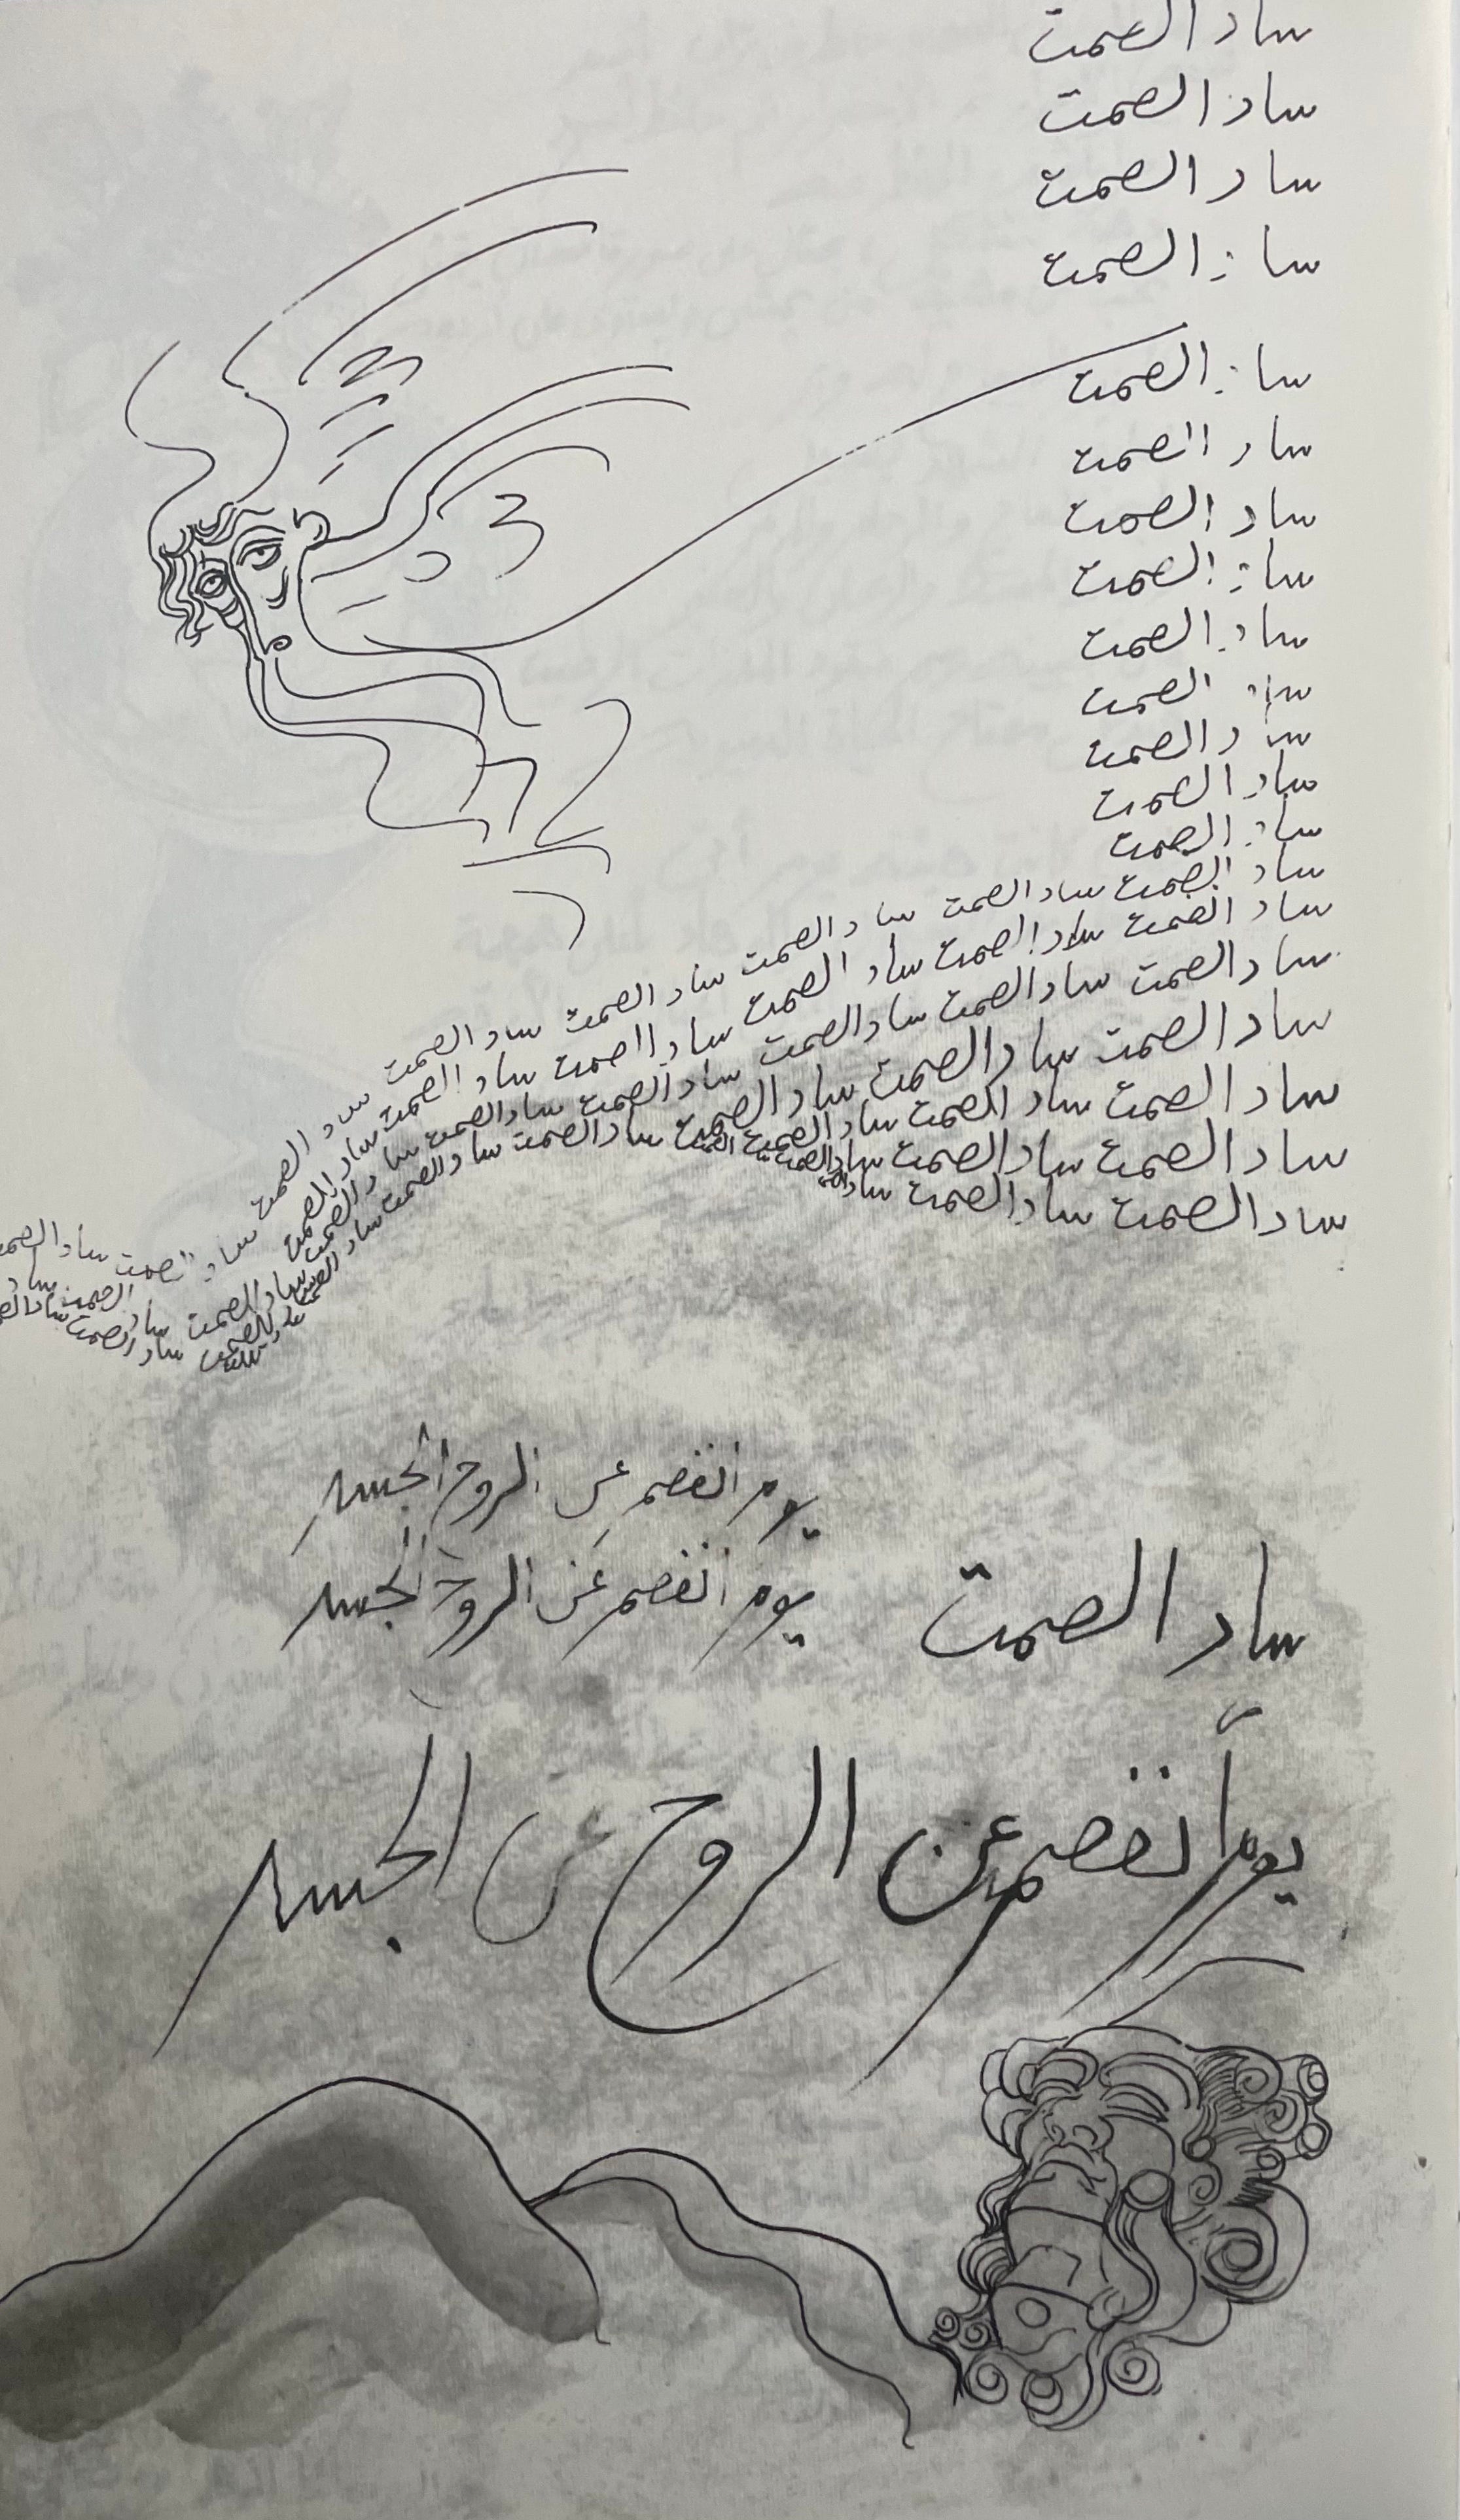 ساد الصمت
ساد الصمت
ساد الصمت
ساد الصمت
ساد الصمت
ساد الصمت
ساد الصمت
ساد الصمت
ساد الصمت
ساد الصمت
ساد الصمت
ساد الصمت
ساد الصمت
ساد الصمت ساد الصمت ساد الصمت ساد الصمت ساد الصمت ساد الصمت
ساد الصمت ساد الصمت ساد الصمت ساد الصمت ساد الصمت ساد الصمت
ساد الصمت ساد الصمت ساد الصمت ساد الصمت ساد الصمت ساد الصمت
ساد الصمت ساد الصمت ساد الصمت ساد الصمت ساد الصمت
ساد الصمت ساد الصمت ساد الصمت
ساد الصمت ساد الصمت ساد الصمت
ساد الصمت ساد الصمت
يوم انفصم عن الروح الجسد
يوم انفصم عن الروح الجسد
ساد الصمت
يوم أنفصم عن الروح عن الجسد